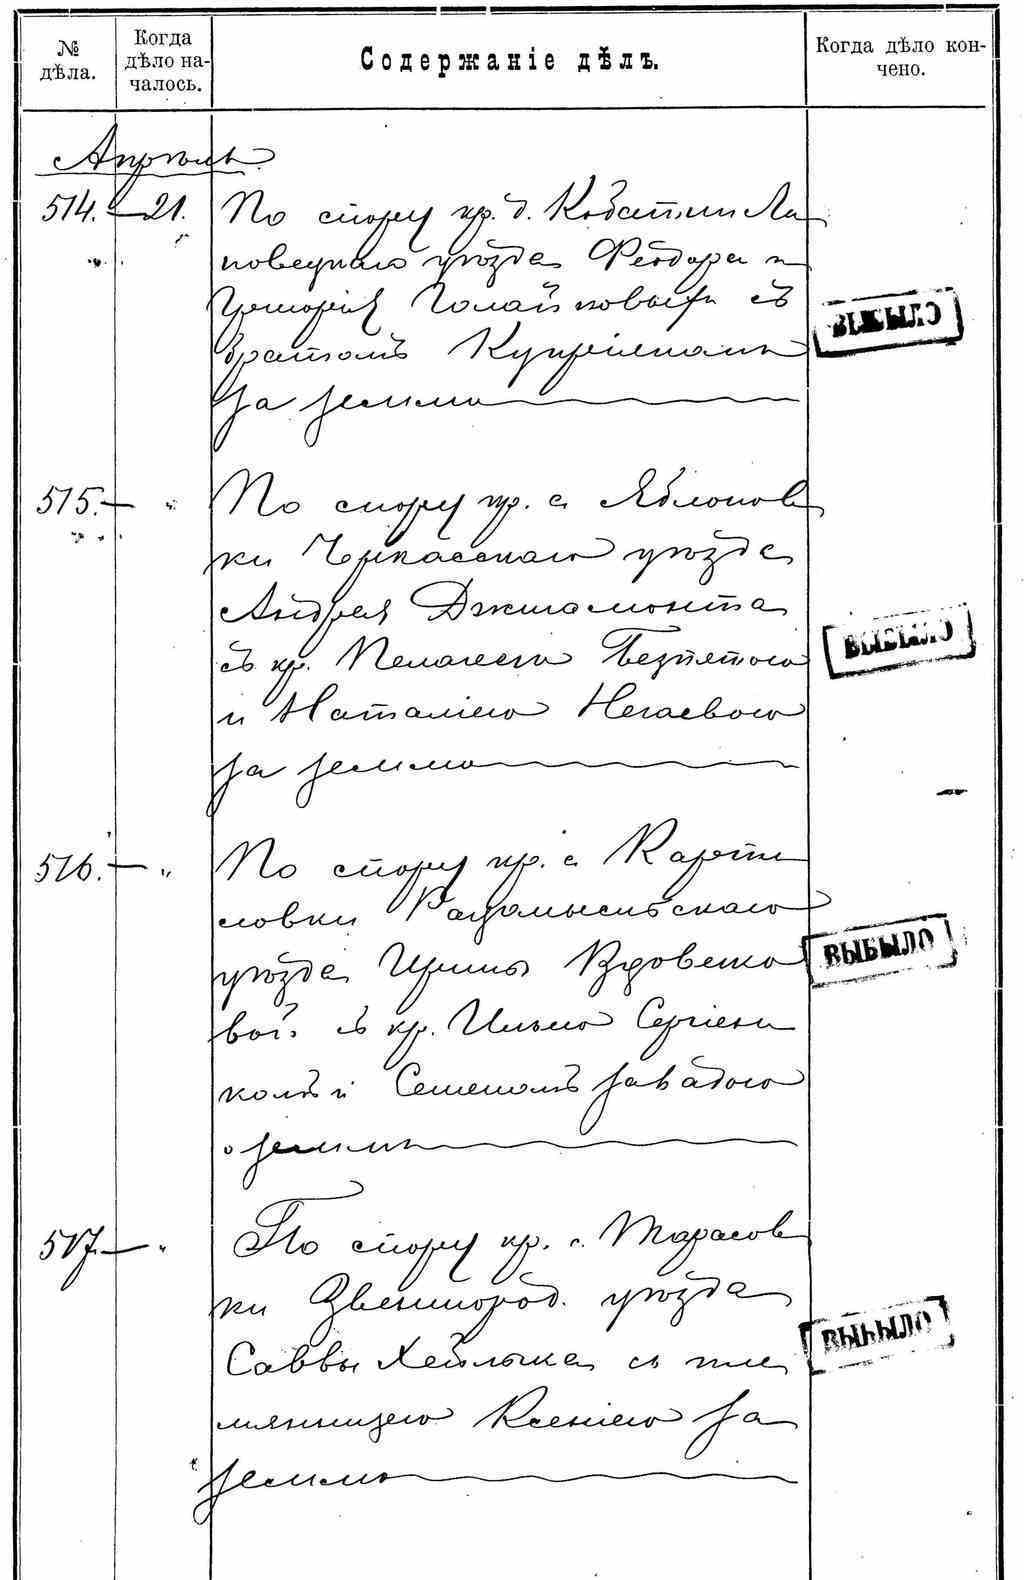 № дѣла.
Когда дѣло на-
чалось.
Содержаніе дѣлъ.
Когда дѣло кон-
чено.
Апрѣль
514. 21. По спору кр. д.
уѣзда Феодора и
Григорія съ
братомъ Купріяномъ
за землю
ВЫБЫЛО
515. — " По спору кр. с. Яблонов
ки Черкасскаго уѣзда
Андрея Джиамонта
съ кр. Пелагеею Безпятою
и Наталіею Негаевою
за землю
ВЫБЫЛО
516. — " По спору кр. с. Карпи
ловки Радомысльскаго
уѣзда Ирины Вдовенко
вой съ кр. Ильею Сергіен
комъ и Семеномъ Завадою
о землѣ
ВЫБЫЛО
517. — " По спору кр. с. Тарасов
ки Звенигород. уѣзда
Саввы съ пле
мянницею Ксеніею за
землю
ВЫБЫЛО